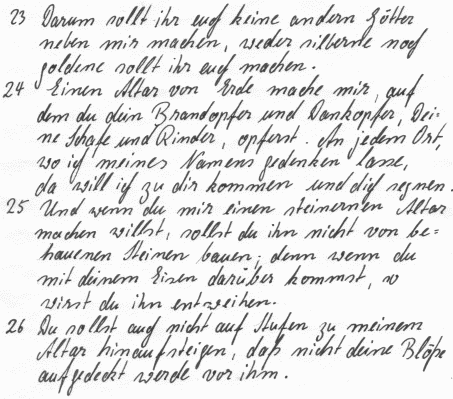 23 Darum sollt ihr euch keine andern Götter
neben mir machen, weder silberne noch
goldene sollt ihr euch machen.
24 Einen Altar von Erde mache mir, auf
dem du dein Brandopfer und Dankopfer, Dei=
ne Schafe und Rinder, opferst. An jedem Ort,
wo ich meines Namens gedenken lasse,
da will ich zu dir kommen und dich segnen.
25 Und wenn du mir einen steinernen Altar
machen willst, sollst du ihn nicht von be=
hauenen Steinen bauen; denn wenn du
mit deinem Eisen darüber kommst, so
wirst du ihn entweihen.
26 Du sollst auch nicht auf Stufen zu meinem
Altar hinaufsteigen, daß nicht deine Blöße
aufgedeckt werde vor ihm.